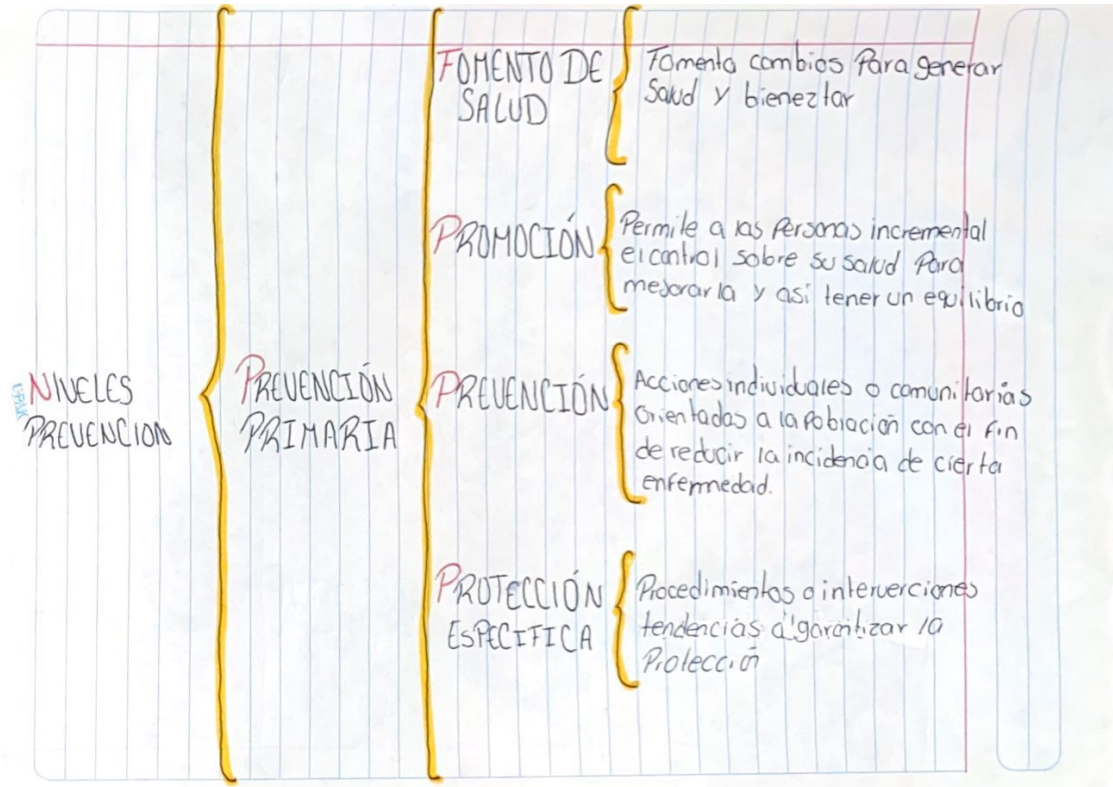 NIVELES
PREVENCION
PREVENCIÓN
PRIMARIA
FOMENTO DE
SALUD
Fomenta cambios Para generar
Salud y bieneztar
PROMOCIÓN
Permite a las Personas incremental
el control sobre su salud Para
mejorarla y así tener un equilibrio
PREVENCIÓN
Acciones individuales o comunitarias
Orientadas a la Población con el fin
de reducir la incidencia de cierta
enfermedad.
PROTECCIÓN
ESPECIFICA
Procedimientos o interverciones
tendencias a garantizar la
Protección